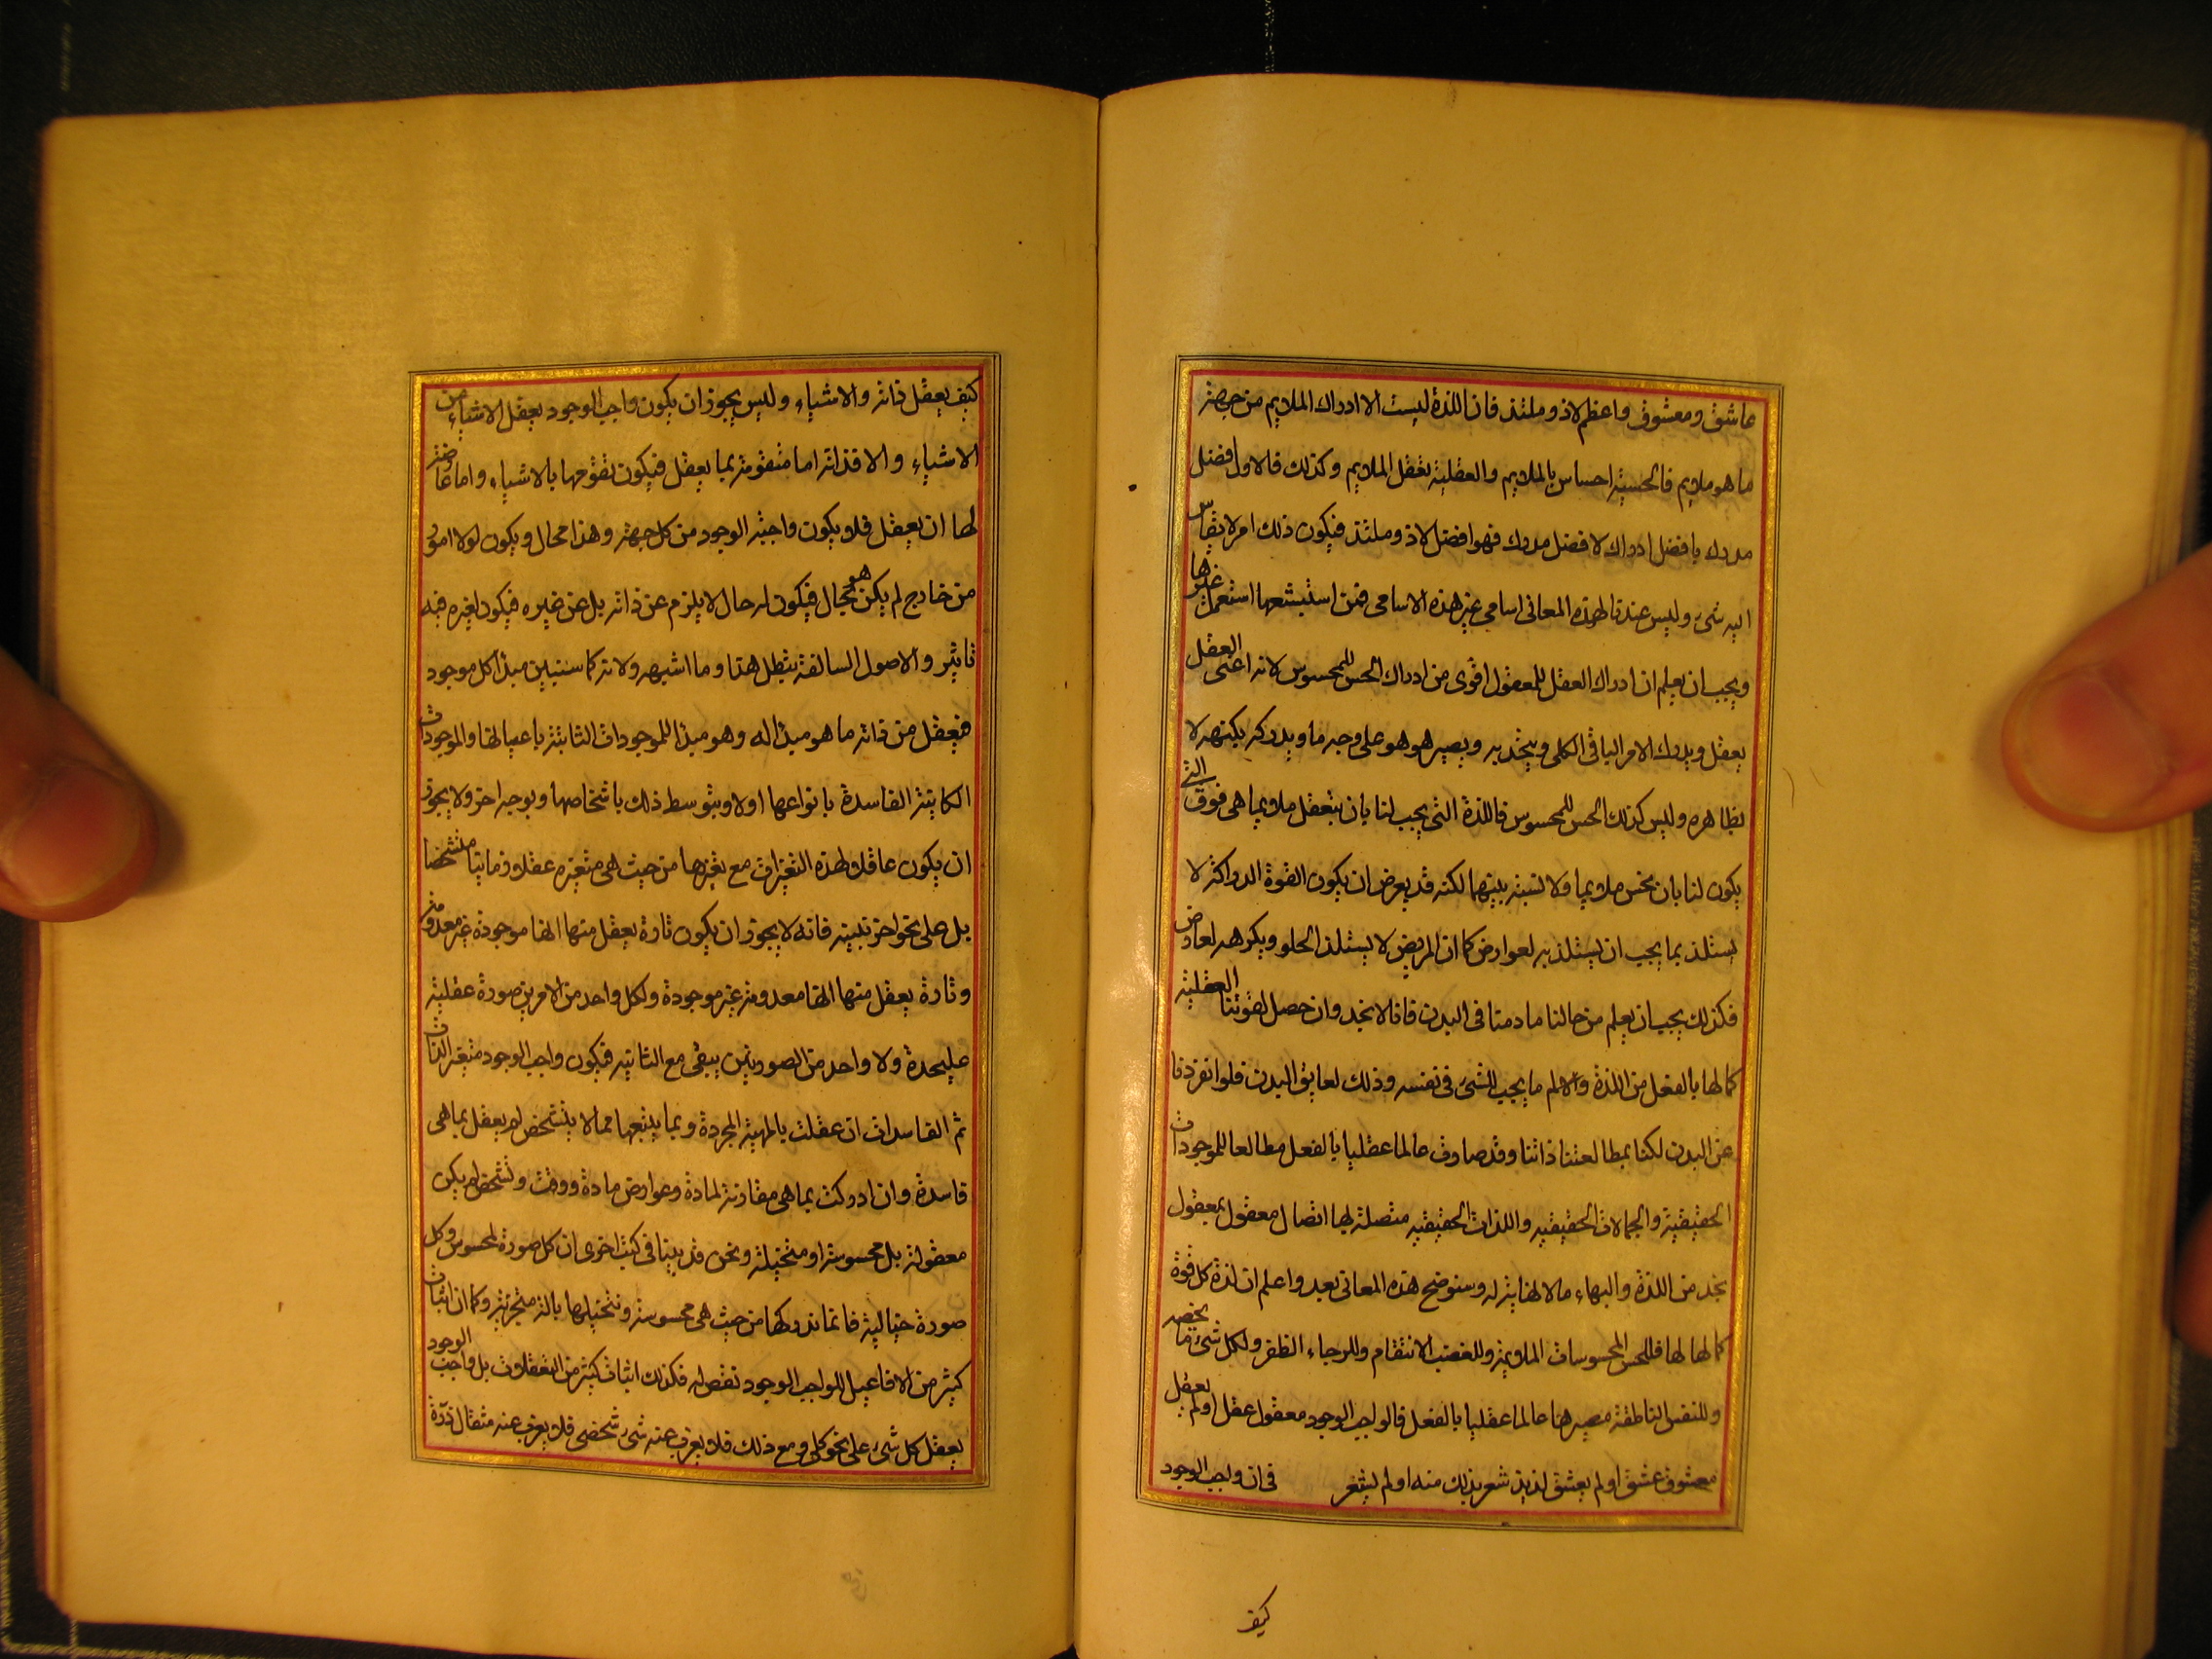 عاشق ومعشوق واعظم لاذ وملتذ فان اللذة ليست الا ادراك الملايم من جهة
ما هو ملايم فالحسية احساس بالملايم والعقلية تعقل الملايم وكذلك فالاول افضل
مدرك بافضل ادراك لافضل مدرك فهو افضل لاذ وملتذ فيكون ذلك امرلا يقاس
اليه شئ وليس عندنا لهذه المعانى اسامى غير هذه الاسامى فمن استبشعها استعمل غيرها
ويجب ان يعلم ان ادراك العقل للمعقول اقوى من ادراك الحس للمحسوس لانه اعنى العقل
يعقل ويدرك الامر الباقى الكلى ويتحد به ويصير هو هو على وجه ما ويدركه بكنهه لا
بظاهره وليس كذلك الحس للمحسوس فاللذة التى يجب لنا بان يتعقل ملايما هى فوق التى
يكون لنا بان نحس ملايما ولا نسبة بينهما لكنه قد يعرض ان يكون القوة الدراكة لا
يستلذ بما يجب ان يستلذ به لعوارض كما ان المريض لا يستلذ الحلو ويكرهه لعارض
فكذلك يجب ان يعلم من حالنا ما دمنا فى البدن فانا لا نجد وان حصل لقوتنا العقلية
كمالها بالفعل من اللذة والالم ما يجب للشئ فى نفسه وذلك لعايق البدن فلو انفردنا
عن البدن لكنا بمطالعتنا ذاتنا وقد صارت عالما عقليا بالفعل مطالعا للموجودات
الحقيقية والجمالات الحقيقيه واللذات الحقيقيه متصلة بها اتصال معقول بمعقول
نجد من اللذة والبهاء ما لا نهاية له وسنوضح هذه المعانى بعد واعلم ان لذة كل قوة
كمالها لها فللحس المحسوسات الملايمة وللغضب الانتقام وللرجاء الظفر ولكل شئ ما يخصه
وللنفس الناطقة مصيرها عالما عقليا بالفعل فالواجب الوجود معقول عقل اولم يعقل
معشوق عشق اولم يعشق لذيذ شعر بذلك منه اولم يشعر فى ان واجب الوجود
كيف
كيف يعقل ذاته والاشياء وليس يجوز ان يكون واجب الوجود يعقل الاشياء من
الاشياء والا فذاته اما متقومة بما يعقل فيكون تقومها بالاشياء واما عارضة
لها ان يعقل فلا يكون واجبة الوجود من كل جهة وهذا محال ويكون لولا امور
من خارج لم يكن هو بحال فيكون له حال لا يلزم عن ذاته بل عن غيره فيكون لغيره فيه
تاثير والاصول السالفة يبطل هذا وما اشبهه ولانه كما سنبين مبدأ كل موجود
فيعقل من ذاته ما هو مبدأ له وهو مبدأ للموجودات الثابتة باعيانها والموجودات
الكاينة الفاسدة بانواعها اولا وبتوسط ذلك باشخاصها وبوجه اخر ولا يجوز
ان يكون عاقلا لهذه التغيرات مع تغيرها من حيث هى متغيرة عقلا زمانيا متشخصا
بل على نحو اخر نبينه فانه لا يجوز ان يكون تارة يعقل منها انها موجودة غير معدومة
وتارة يعقل منها انها معدومة غير موجودة ولكل واحد من الامرين صورة عقلية
عليحدة ولا واحد من الصورتين يبقى مع الثانية فيكون واجب الوجود متغير الذات
ثم الفاسدات ان عقلت بالمهية المجردة وبما يتبعها مما لا يتشخص لم يعقل بما هى
فاسدة وان ادركت بما هى مقارنة لمادة وعوارض مادة ووقت وتشخص لم يكن
معقولة بل محسوسة او متخيلة ونحن قد بينا فى كتب اخرى ان كل صورة لمحسوس وكل
صورة خيالية فانما ندركها من حيث هى محسوسة ونتخيلها بالة متجزئة وكما ان اثبات
كثير من الافاعيل للواجب الوجود نقص له فكذلك اثبات كثير من التعقلات بل واجب الوجود
يعقل كل شئ على نحو كلى ومع ذلك فلا يعزب عنه شئ شخصى فلا يعزب عنه مثقال ذرة